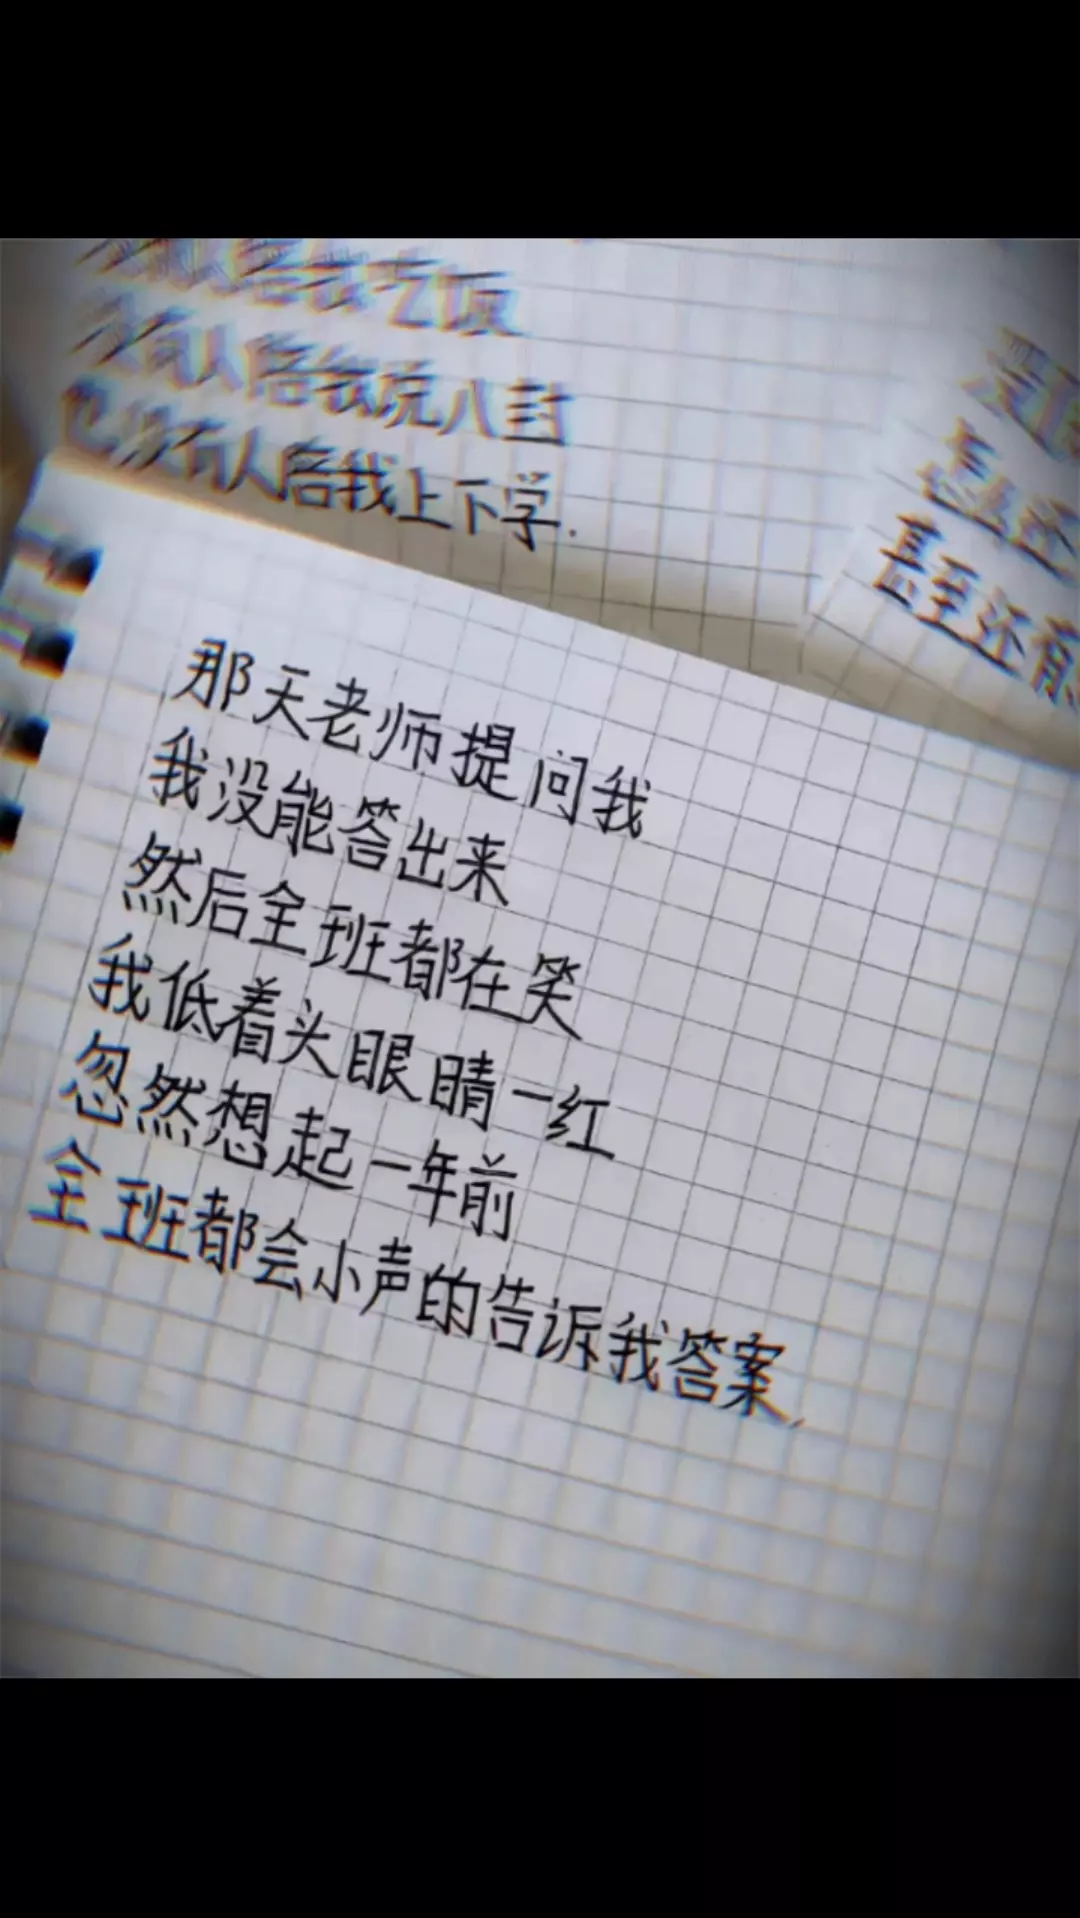 没有人陪我吃饭
没有人陪我说八卦
也没有人陪我上下学.
甚至还
甚至还有
那天老师提问我
我没能答出来
然后全班都在笑
我低着头眼睛一红
忽然想起一年前
全班都会小声的告诉我答案.